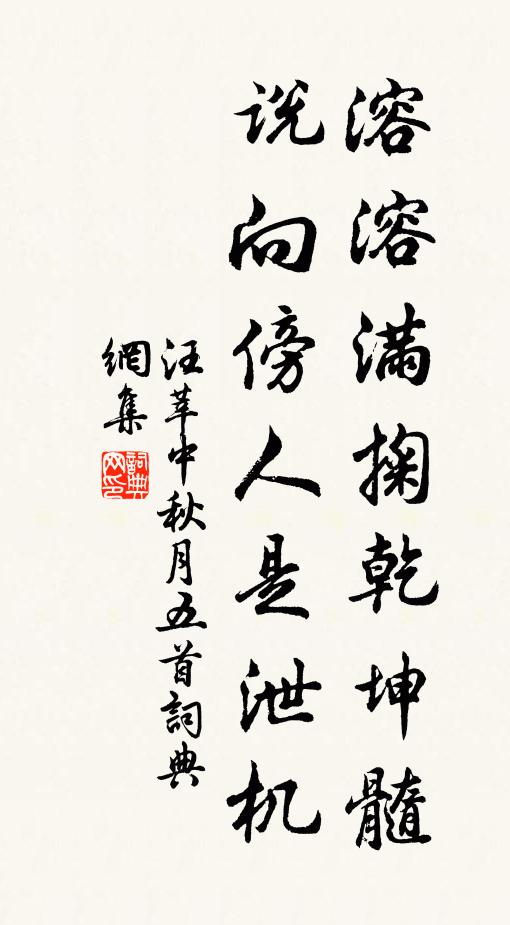 溶溶滿掬乾坤髓
説向傍人是泄机
汪莘中秋月五首詞典
網集
詞典
网印